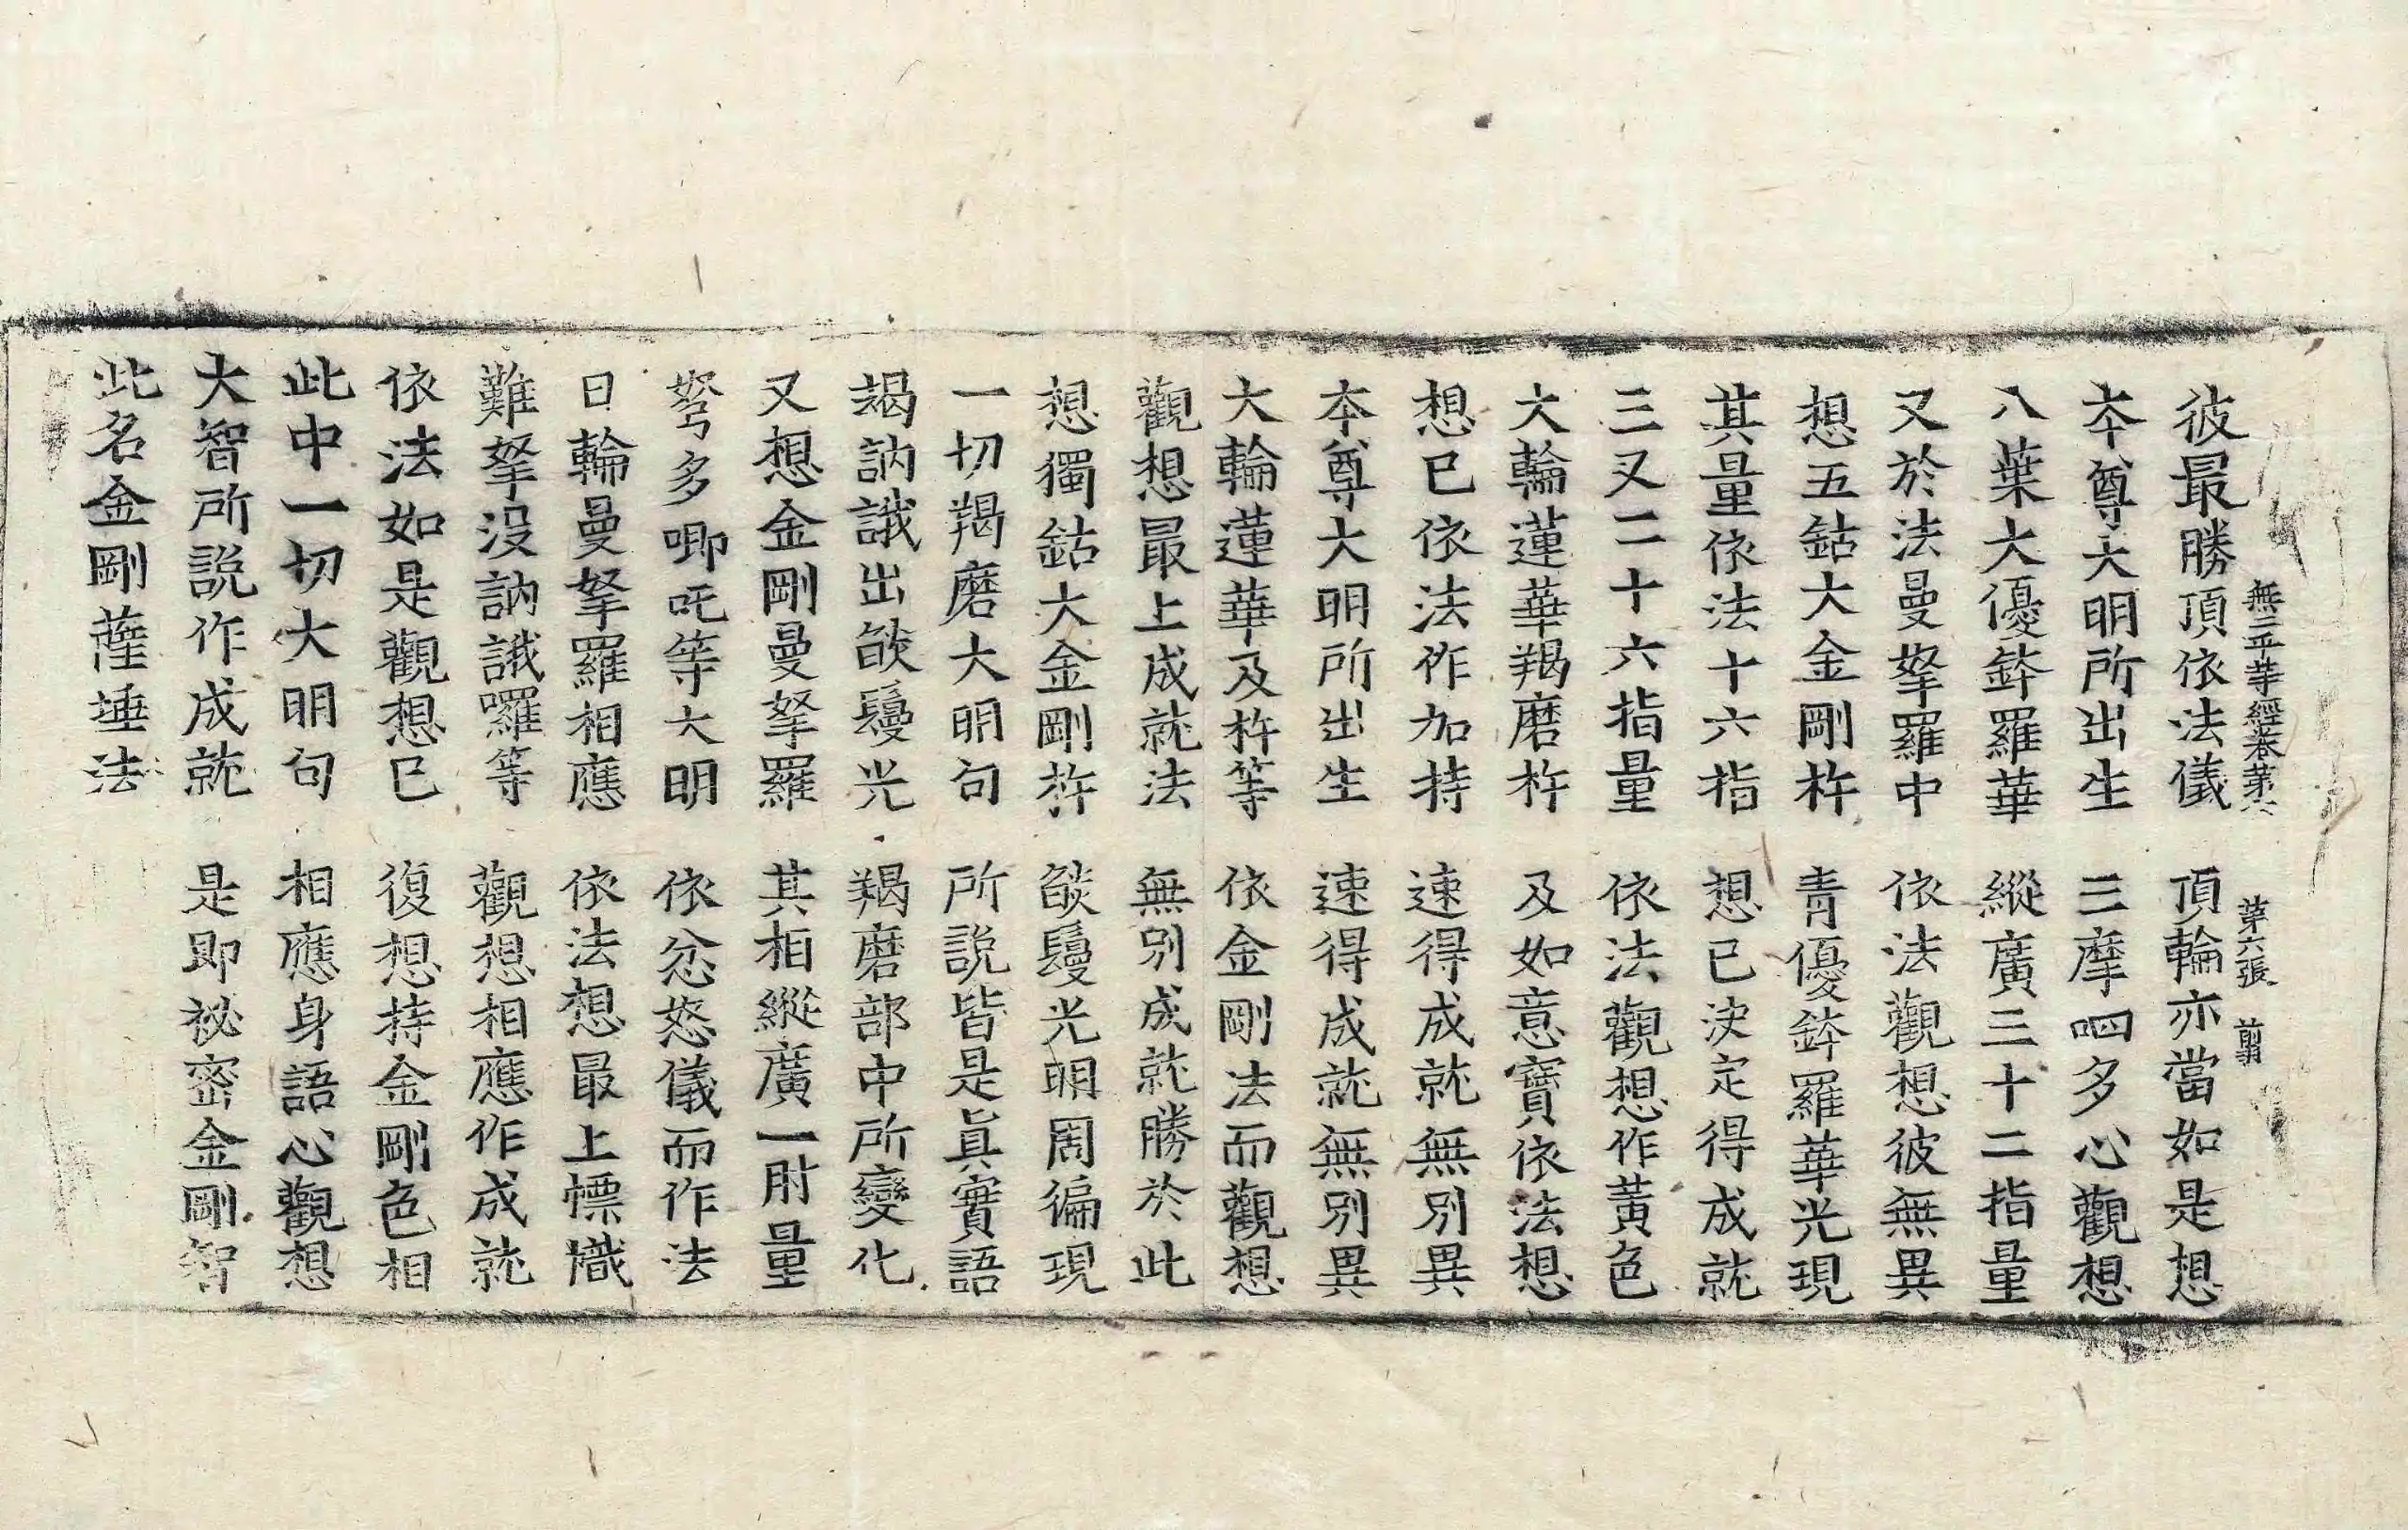 無二平等經卷第六 第六張 翦
彼最勝頂依法儀 頂輪亦當如是想
本尊大明所出生 三摩呬多心觀想
八葉大優鉢羅華 縱廣三十二指量
又於法曼拏羅中 依法觀想彼無異
想五鈷大金剛杵 青優鉢羅華光現
其量依法十六指 想已決定得成就
三又二十六指量 依法觀想作黃色
大輪蓮華羯磨杵 及如意寶依法想
想已依法作加持 速得成就無別異
本尊大明所出生 速得成就無別異
大輪蓮華及杵等 依金剛法而觀想
觀想最上成就法 無別成就勝於此
想獨鈷大金剛杵 燄鬘光明周徧現
一切羯磨大明句 所說皆是眞實語
竭訥誐出燄鬘光 羯磨部中所變化
又想金剛曼拏羅 其相縱廣一肘量
弩多唧吒等大明 依忿怒儀而作法
日輪曼拏羅相應 依法想最上幖幟
難拏沒訥誐囉等 觀想相應作成就
依法如是觀想已 復想持金剛色相
此中一切大明句 相應身語心觀想
大智所說作成就 是即祕密金剛智
此名金剛薩埵法